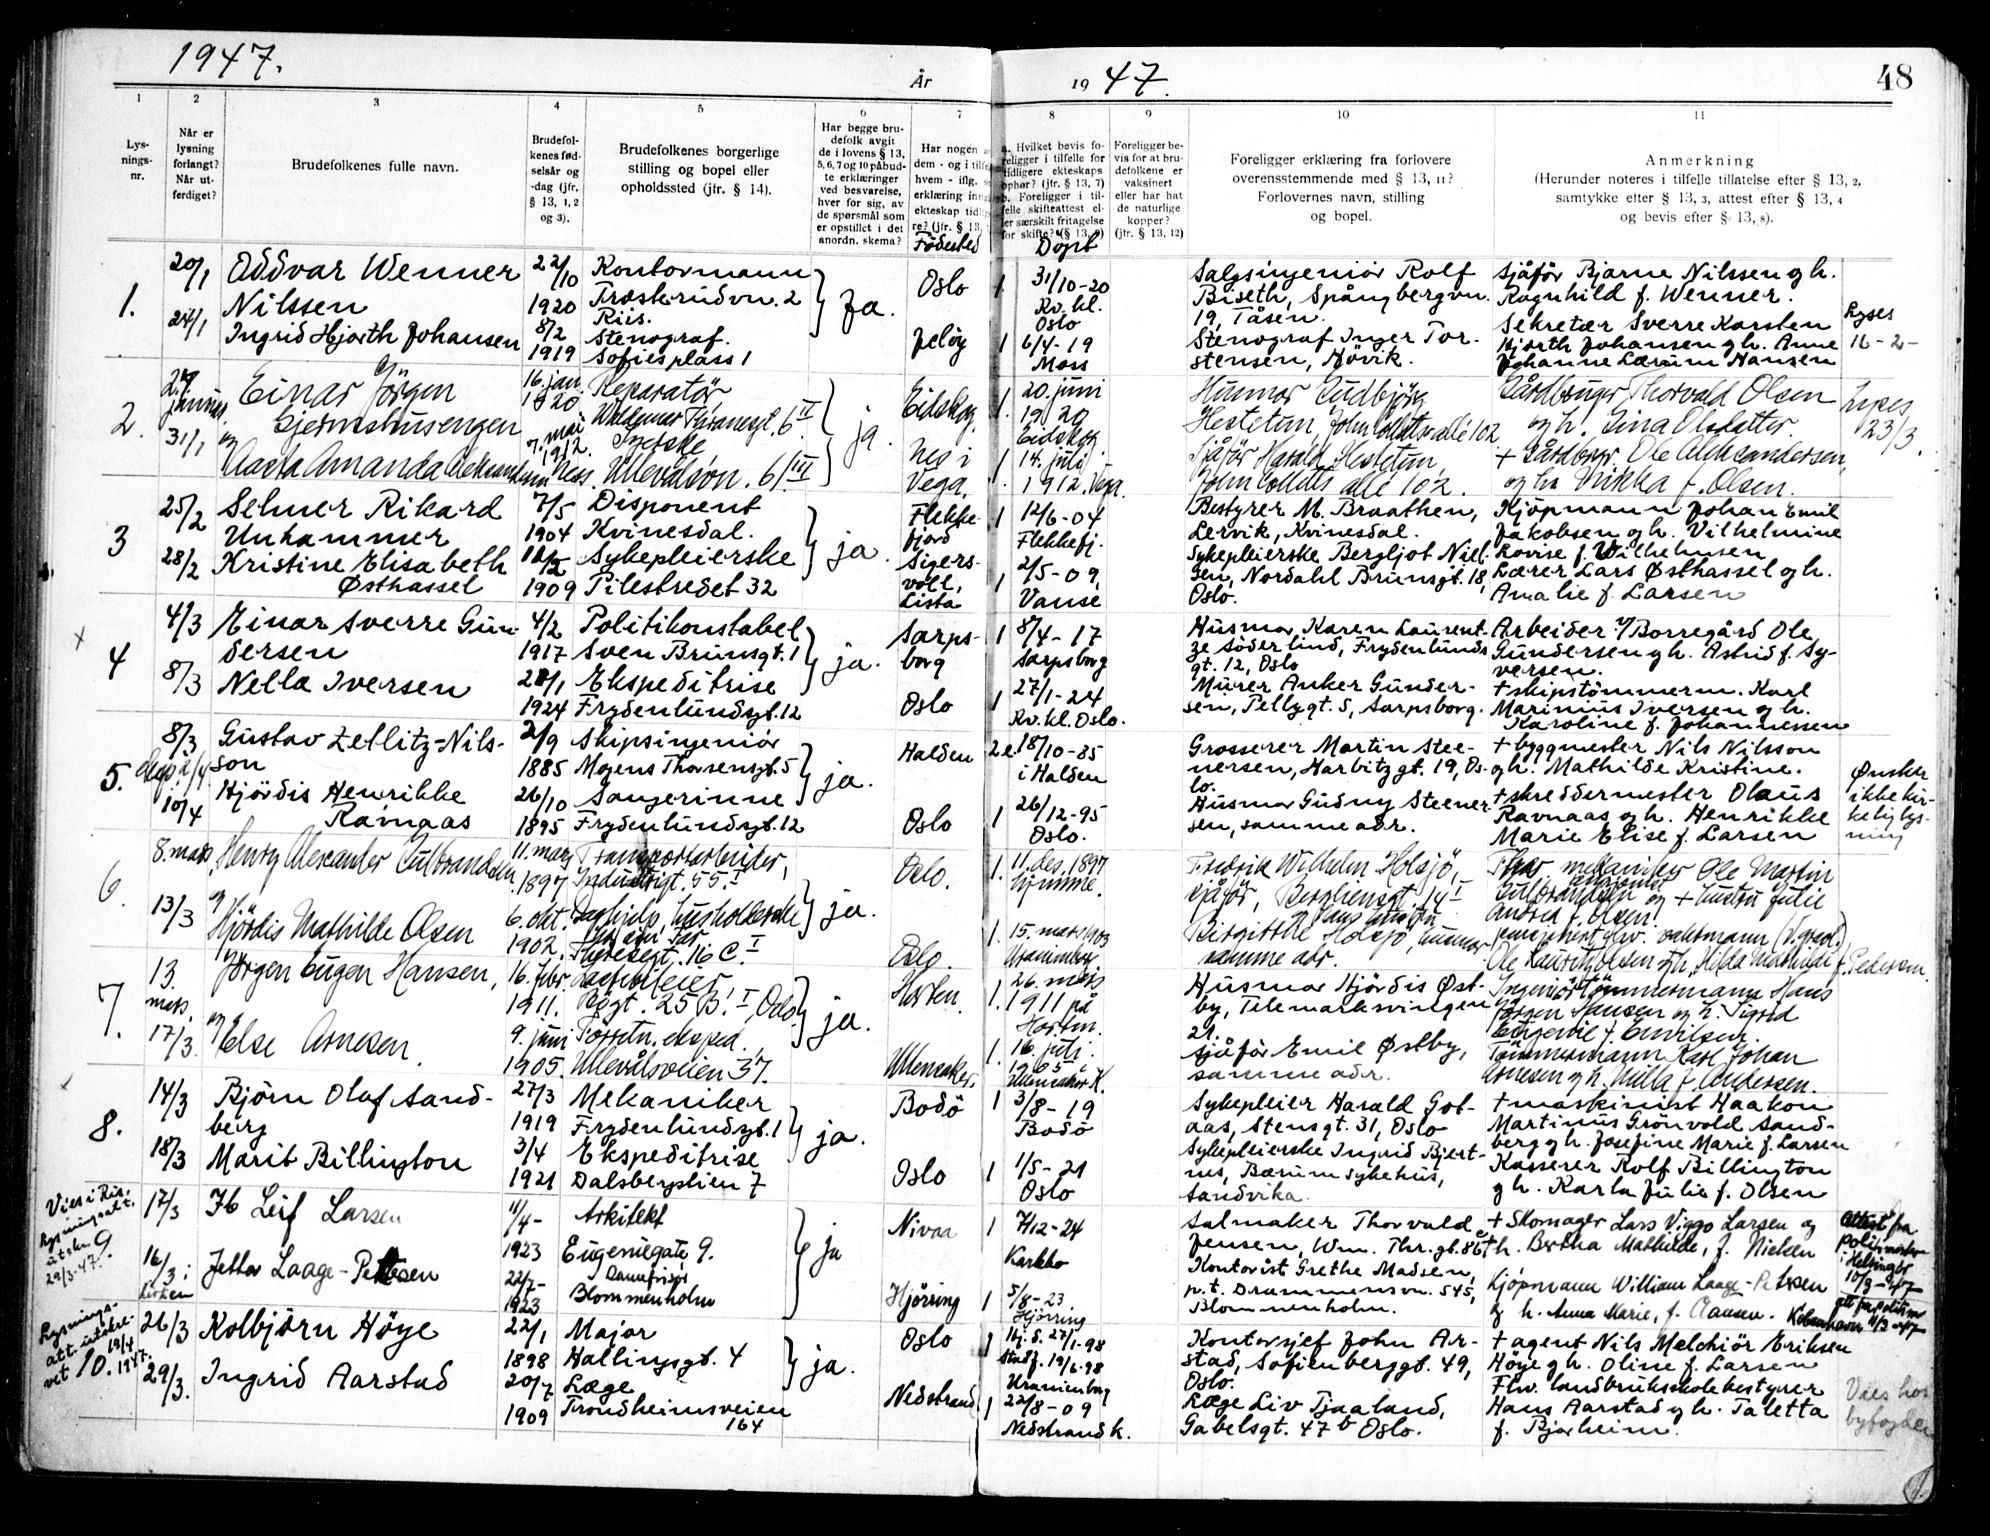 1947.
År
19 47.
48
1
2
3
4
5
6
7
8
9
10
11
Lys-
nings-
nr.
Når er
lysning
forlangt?
Når ut-
ferdiget?
Brudefolkenes fulle navn.
Brudefol-
kenes fød-
selsår og
-dag (jfr.
§ 13, 1, 2
og 3).
Brudefolkenes borgerlige
stilling og bopel eller
opholdssted (jfr. § 14).
Har begge bru-
defolk avgit
de i lovens § 13,
5, 6, 7 og 10 påbud-
te erklæringer
ved besvarelse,
hver for sig, av
de spørsmål som
er opstillet i det
anordn. skema?
Har nogen
dem - og i tilfe
hvem - iflg.
erklæring inng
ekteskap tidlig
re? (jfr. § 13,
Födested
a. Hvilket bevis fo-
religger i tilfelle for
tidligere ekteskaps
ophør? (jfr. § 13, 7)
b. Foreligger i til-
felle skifteattest el-
ler særskilt fritagelse
for skifte? (§ 13, 9)
Döpt
Foreligger be-
vis for at bru-
defolkene er
vaksinert
eller har hat
de naturlige
kopper?
(jfr. § 13, 12)
Foreligger erklæring fra forlovere
overensstemmende med § 13, 11?
Forlovernes navn, stilling
og bopel.
Anmerkning
(Herunder noteres i tilfelle tillatelse efter § 13, 2,
samtykke efter § 13, 3, attest efter § 13, 4
og bevis efter § 13, 8).
1.
20/1
24/1
Oddvar Wenner
Nilssen
Ingrid Hjorth Johansen
22/10
1920
8/2
1919
Kontormann
Træskrudvn. 2
Riis.
Stenograf.
Sofies plass 1
Ja.
Oslo
Jelöy
1
31/10-20
Kv. kl.
Oslo
1
6/4-19
Moss
Salgsingeniör Rolf
Biseth, Spångbergvn.
19, Tåsen.
Stenograf Inger Tor-
stensen, Hövik.
Sjåför Bjarne Nilssen og h.
Ragnhild f. Wenner.
Sekretær Sverre Karsten
Hjorth Johansen og h. Anne
Johanne Lærum Hansen
Lyses
16-2-
2.
januar
31/1
Einar Jörgen
Gjermshusengen
og
Aasta Amanda Aleksandersen Ness.
16. jan
1920
7. mai
1912.
Reparatör
Waldemar Thranesgt. 6 II
Ullevålsvn. 61 III
ja.
Eidskog.
Nes i
Vega.
1.
20. juni
1920
Eidskog
1.
14. juli
1912. Vega.
Husmor Gudbjörg
Hestetun, John Colletts alle 102
Sjåför Harald Hestetun,
John Colletts alle 102.
Gårdbruger Thorvald Olsen
og h. Gina Olsdatter.
+ Gårdbrgr. Ole Aleksandersen,
og h. Mikka f. Olsen.
Lyses
23/3.
3
25/2
28/2
Selmer Rikard
Unhammer
Kristine Elisabeth
Østhassel
7/5
1904
1909
Disponent
Kvinesdal.
Sykepleierske
Pilestredet 32
ja.
Flekke-
fjord
Sigers-
voll,
Lista
1
12/6-04
Flekkefj.
1
2/5-09,
Vanse
Bestyrer M. Braathen,
Lervik, Kvinesdal.
Sykepleierske Bergljot Niel-
sen, Nordahl Brunsgt. 18,
Oslo.
Kjöpmann Johan Emil
Jakobsen og h. Vilhelmine
Lovise f. Wilhelmsen
Lærer Lars Østhassel og h.
Amalie f. Larsen
4
4/3
8/3
Einar Sverre Gun-
dersen
Nella Iversen
4/2
1917
1924
Politikonstabel
Sven Brunsgt. 1
Ekspeditrise
Frydenlundsgt. 12
ja.
Sarps-
borg
Oslo
1
8/4-17
Sarpsborg
1
27/1-24
Kv. kl. Oslo.
Husmor Karen Laurent-
ze Söderlund, Frydenlunds
gt. 12, Oslo
Murer Anker Gunder-
sen, Pellygt. 5, Sarpsborg.
Arbeider v/Borregård Ole
Gundersen og h. Astrid f. Sy-
versen.
+ skipstömmerm. Karl
Marinius Iversen og h.
Karoline f. Johannessen
5.
8/3
10/4
Gustav Zetlitz-Nils-
son
Hjördis Henrikke
Ravnaas
2/9
1885
26/10
1895
Skipsingeniör
Mogens Thorsensgt. 5
Sangerinne
Frydenlundsgt. 12
ja.
Halden
Oslo
2
18/10-85
i Halden
1
26/12-95
Oslo.
Grosserer Martin Stee-
nersen, Harbitzgt. 19, Os-
lo.
Husmor Gudny Steener-
sen, samme adr.
+ byggmester Nils Nilsson
og h. Mathilde Kristine.
+ skreddermester Olaus
Ravnaas og h. Henrikke
Marie Elise f. Larsen
Ønsker
ikke kir-
kelig lys-
ning
6.
8. mars
13/3
Henry Alexander Gulbrandsen
og
Hjördis Mathilde Olsen
11. mars
1897
6. okt.
1902.
Transportarbeider,
Industrigt. 55. I
Daghjelp, husholderske
Theresegt. 16 C. I
ja.
Oslo.
Oslo.
1.
11. des. 1897
hjemme.
1.
15. mars 1903
Uranienborg
Fredrik Wilhelm Holsjö,
sjåför, Bergliensgt. 14 I
Birgitthe Holsjö, husmor
samme adr.
Fhv. mekaniker Ole Martin
Gulbrandsen og + hustru Julie
Andrea f. Olsen
pensjonert fhv. vaktmann
Ole Lauritz Olsen og h. Hilda Mathilde f. Pedersen.
7.
13.
mars.
17/3.
Jörgen Eugen Hansen,
og
Else Arnesen.
16. febr.
1911.
9. juni
1905.
Bögt. 25 B. I, Oslo.
Forretn. eksped.
Ullevålsveien 37.
ja.
Horten.
Ullensaker.
1.
26. mars
1911 på
Horten.
1.
16. juli.
1905 i
Ullensaker K.
Husmor Hjördis Øst-
by, Telemarksvingen
21.
Sjåför Emil Østby,
samme adr.
Ingeniör tömmermann Hans
Jörgen Hansen og h. Sigrid
Eugenie f. Emilsen.
Tömmermann Karl Johan
Arnesen og h. Milla f. Andersen.
8.
14/3
18/3
Björn Olaf Sand-
berg
Marit Billington
27/3
1919
3/4
1921
Mekaniker
Frydenlundsgt. 1
Ekspeditrise
Dalsbergstien 7
ja.
Bodö
Oslo
1
3/8-19
Bodö
1
1/5-21
Oslo
Sykepleier Harald Got-
aas, Stensgt. 31, Oslo
Sykepleierske Ingrid Bjert-
nes, Bærum sykehus,
Sandvika.
+ maskinist Haakon
Martinus Grönvold Sand-
berg og h. Josefine Marie f. Larsen
Kasserer Rolf Billington
og h. Karla Julie f. Olsen
Vies i Ris.
Lysningsatt.
utskr.
29/3-47.
9
17/3
16/3 i
kirken
Ib Leif Larsen
Jetta Laage-Petersen
11/4-
1923
22/7-
1923
Arkitekt
Eugeniegate 9.
Blommenholm
ja
Nivaa
Hjörring
1
7/12-24
Karlebo
1
5/8-23.
Hjörring
Salmaker Thorvald
Jensen, Wm. Thr.gt. 86
Kontorist Grethe Madsen,
p.t. Drammensvn. 545,
Blommenholm.
+ Skomager Lars Viggo Larsen og
h. Bertha Mathilde, f. Nielsen
Kjöpmann William Laage-Petersen
og h. Anna Marie, f. Clausen.
Attest fra
politimester
i Helsingör
10/3-47
att. fra politiet
Köbenhavn 11/3-47
Lysnings-
att. utskre-
vet 19/4
1947.
10.
26/3
29/3.
Kolbjörn Höye
Ingrid Aarstad
22/1
1898
20/7
1909
Major
Hallingsgt. 4
Læge
Trondheimsveien
164
ja.
Oslo
Nedstrand
1
Hj. d. 27/1-98
Stadf. 19/6-98
Uranienborg
1
22/8-09
Nedstrand k.
Kontorsjef John Ar-
stad, Sofienberggt. 49,
Oslo.
Læge Liv Tjaaland,
Gabelsgt. 47 b Oslo.
+ agent Nils Melchiör Eriksen
Höye og h. Oline f. Larsen
Fhv. landbruksskolebestyrer
Hans Aarstad og h. Taletta
f. Bjarheim.
Vies hos
byfogden